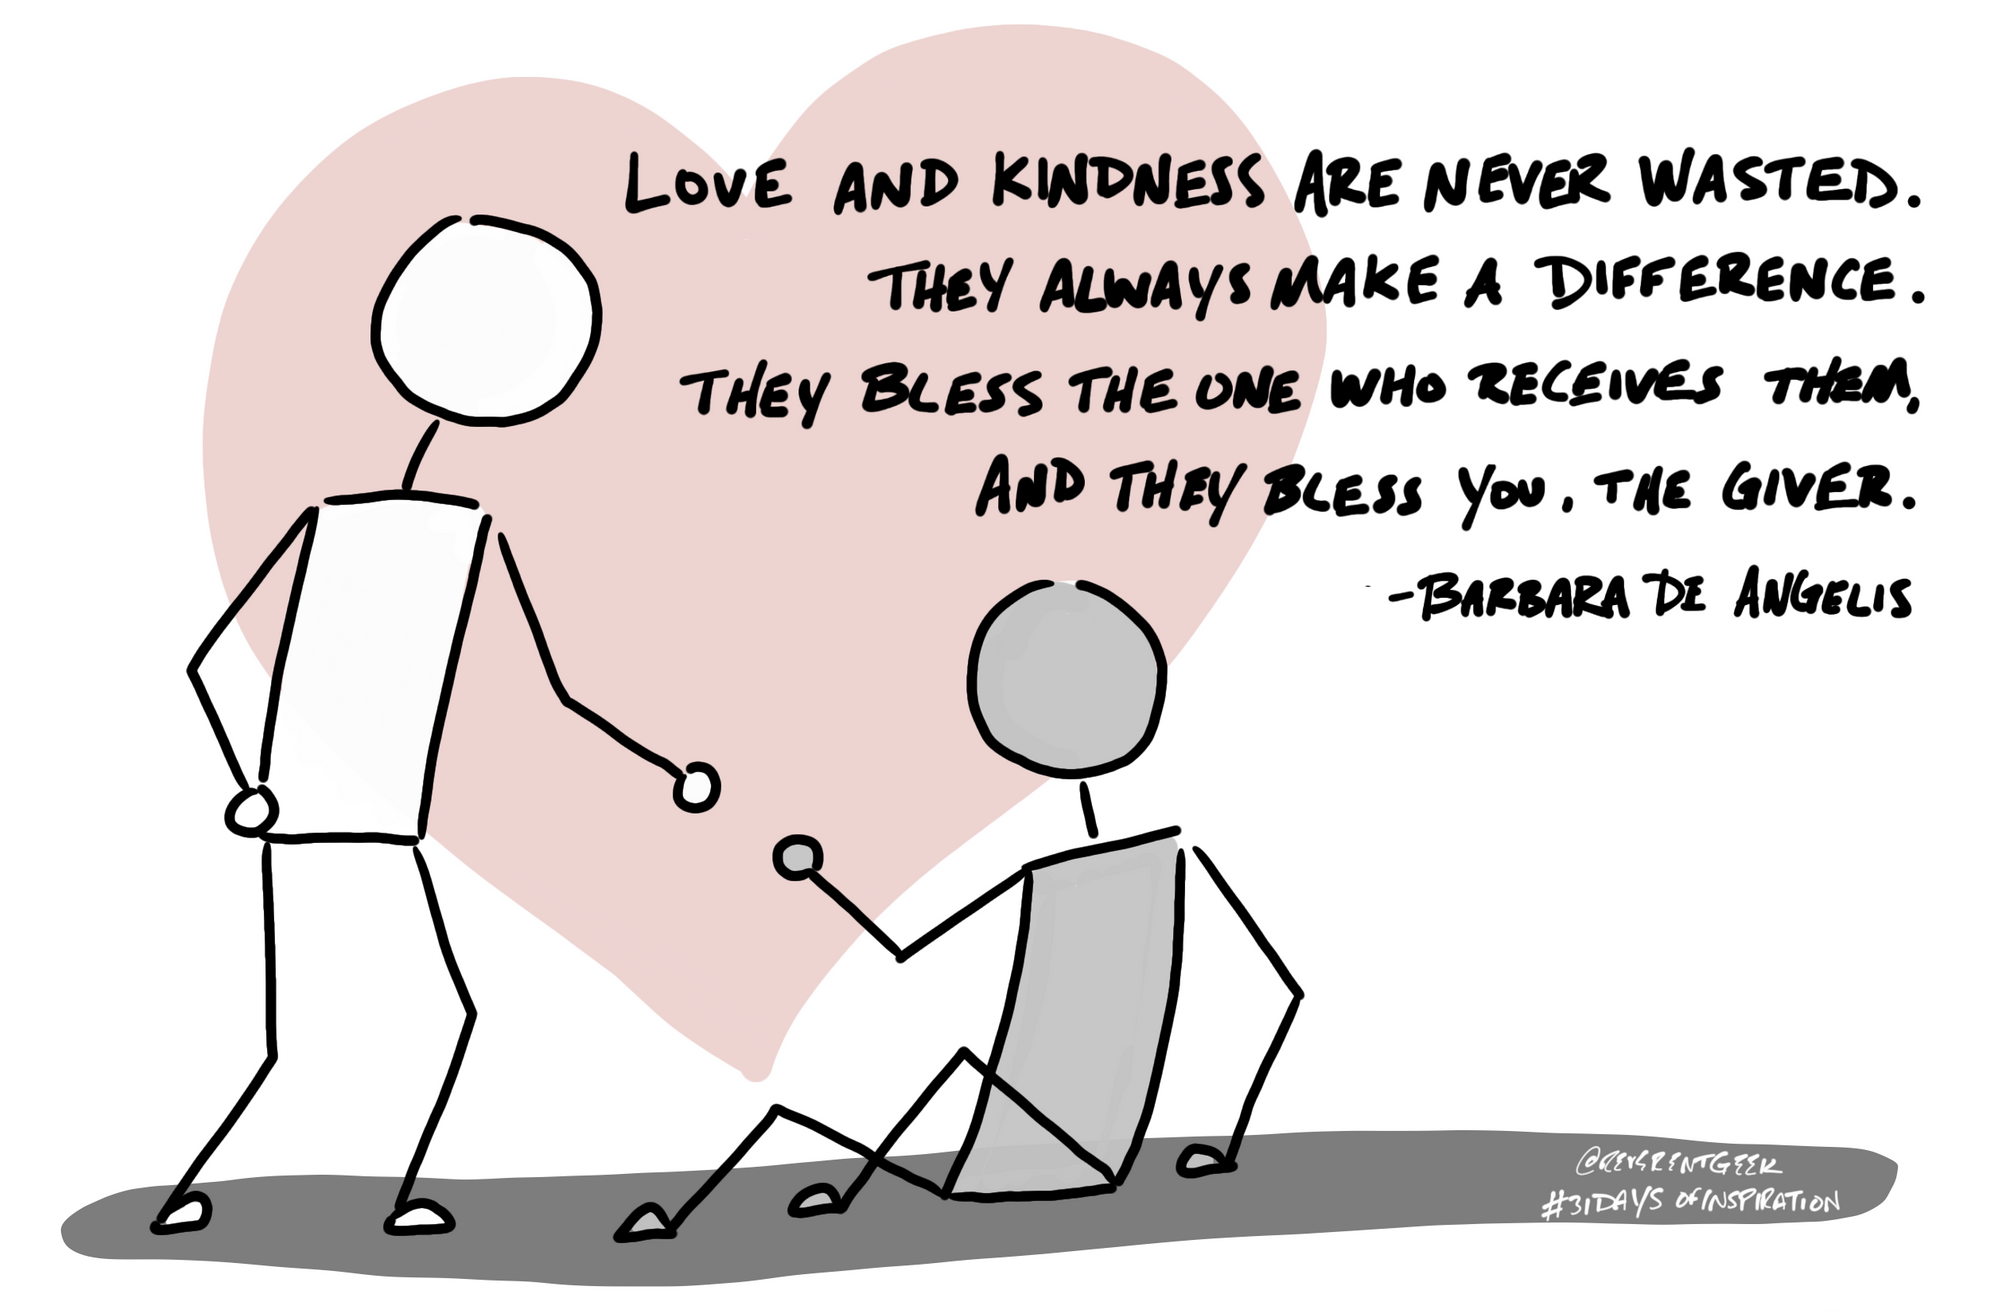 LOVE AND KINDNESS ARE NEVER WASTED.
THEY ALWAYS MAKE A DIFFERENCE.
THEY BLESS THE ONE WHO RECEIVES THEM,
AND THEY BLESS YOU, THE GIVER.
-BARBARA DE ANGELIS
@REVERENTGEEK
#31DAYS OFINSPIRATION